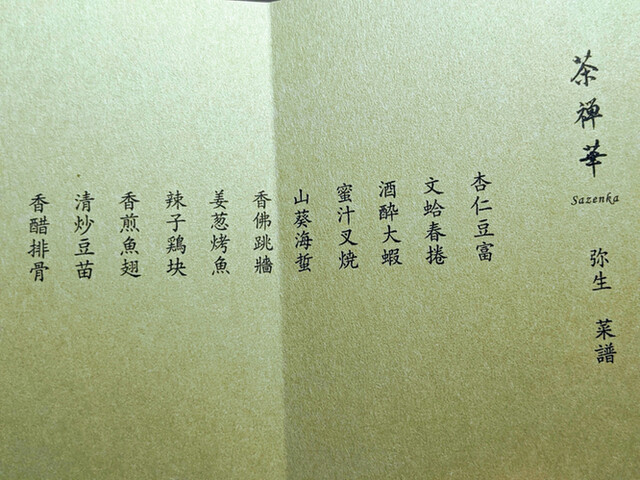 茶禅華
Sazenka
弥生 菜譜
杏仁豆富
文蛤春捲
酒酔大蝦
蜜汁叉焼
山葵海蜇
香佛跳牆
姜葱烤魚
辣子鶏块
香煎魚翅
清炒豆苗
香醋排骨